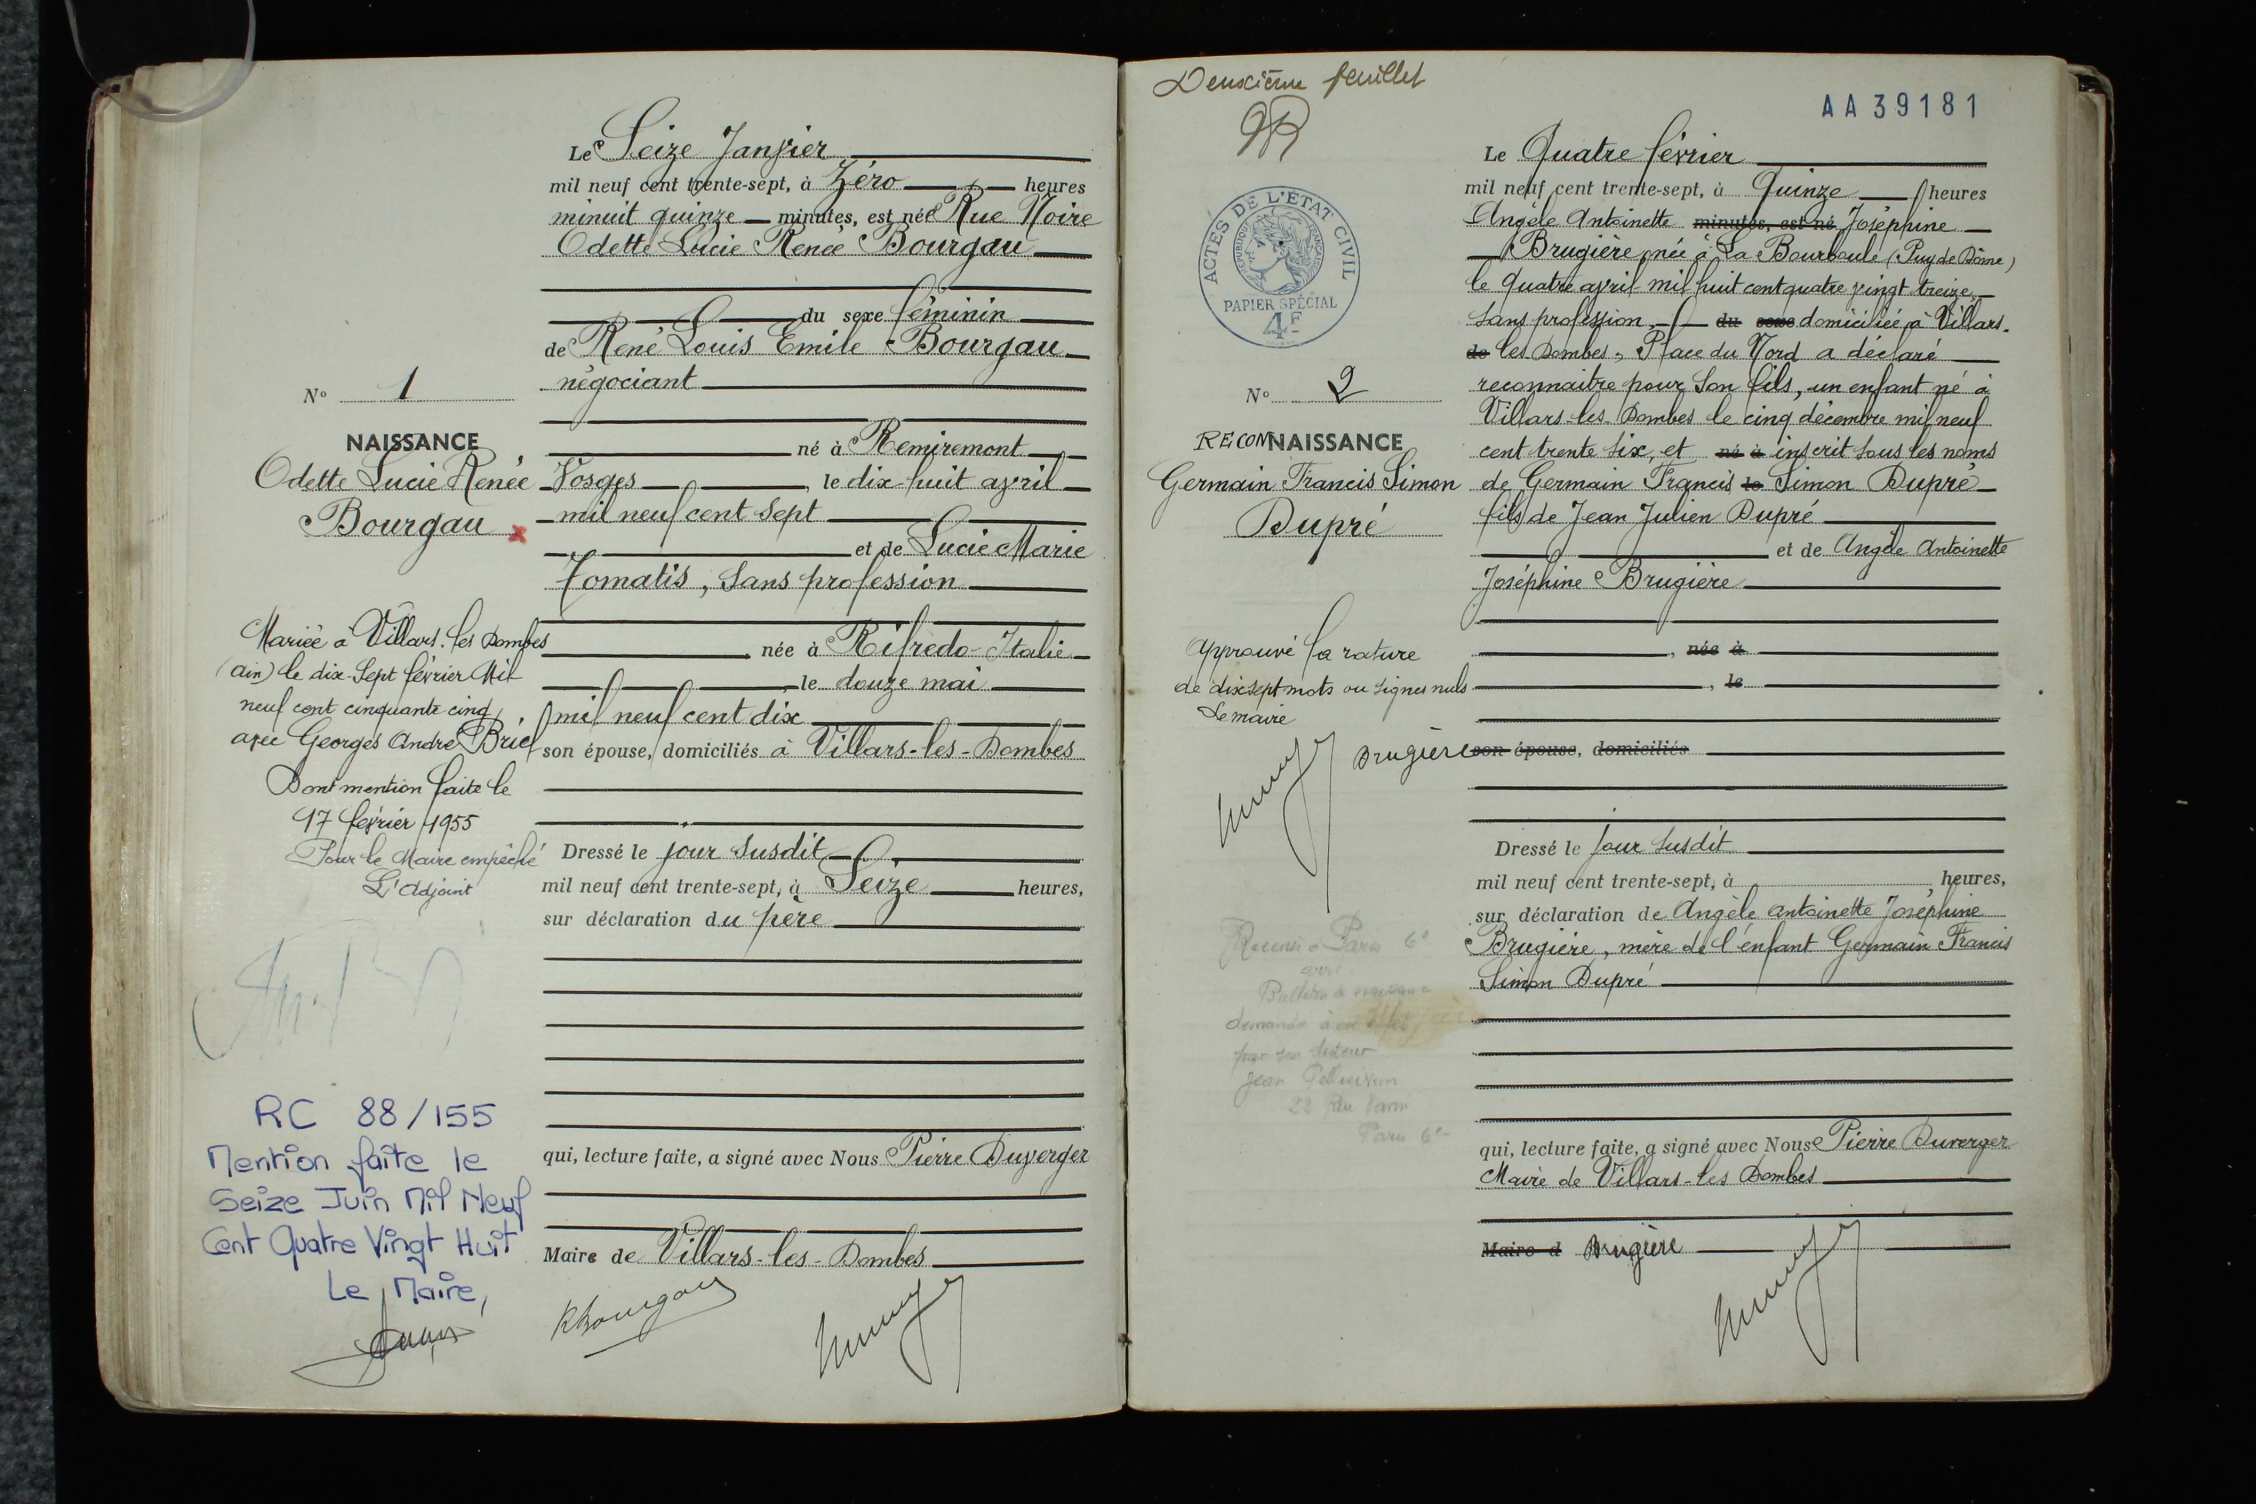 Le Seize Janvier
mil neuf cent trente-sept, à Zéro heures
minuit quinze minutes, est née Rue Noire
Odette Lucie Renée Bourgau
du sexe féminin
de René Louis Emile Bourgau
négociant
né à Remiremont
Vosges, le dix-huit avril
mil neuf cent sept
et de Lucie Marie
Tomatis, sans profession
née à Rifredo-Italie
le douze mai
mil neuf cent dix
son épouse, domiciliés à Villars-les-Dombes
Dressé le jour susdit
mil neuf cent trente-sept, à Seize heures,
sur déclaration du père
qui, lecture faite, a signé avec Nous Pierre Duverger
Maire de Villars-les-Dombes
RBourgau
N° 1
NAISSANCE
Odette Lucie Renée
Bourgau
Mariée à Villars-les Dombes
(Ain) le dix-sept février Mil
neuf cent cinquante cinq
avec Georges André Briel
Dont mention faite le
17 février 1955
Pour le Maire empêché
L'Adjoint
RC 88/155
Mention faite le
Seize Juin Mil Neuf
Cent Quatre Vingt Huit
Le Maire,
Deuxième feuillet
AA39181
ACTES DE L'ETAT CIVIL
REPUBLIQUE FRANCAISE
PAPIER SPÉCIAL
4F
N° 2
RECONNAISSANCE
Germain Francis Simon
Dupré
Approuvé la rature
de dix sept mots ou lignes nuls
Le maire
Brugière
Paris 6e
demandé à
Jean
Paris 6e
Le Quatre février
mil neuf cent trente-sept, à Quinze heures
Angèle Antoinette minutes, est né Joséphine
Brugière née à La Bourboule (Puy de Dôme)
le quatre avril mil huit cent quatre vingt treize,
sans profession, du sexe domiciliée à Villars-
de les Dombes, Place du Nord a déclaré
reconnaitre pour son fils, un enfant né à
Villars-les-Dombes le cinq décembre mil neuf
cent trente six, et né à inscrit sous les noms
de Germain Francis le Simon Dupré
fils de Jean Julien Dupré
et de Angèle Antoinette
Joséphine Brugière
, née à
, le
son épouse, domiciliés
Dressé le jour susdit
mil neuf cent trente-sept, à heures,
sur déclaration de Angèle Antoinette Joséphine
Brugière, mère de l'enfant Germain Francis
Simon Dupré
qui, lecture faite, a signé avec Nous Pierre Duverger
Maire de Villars-les Dombes
Maire d Brugière